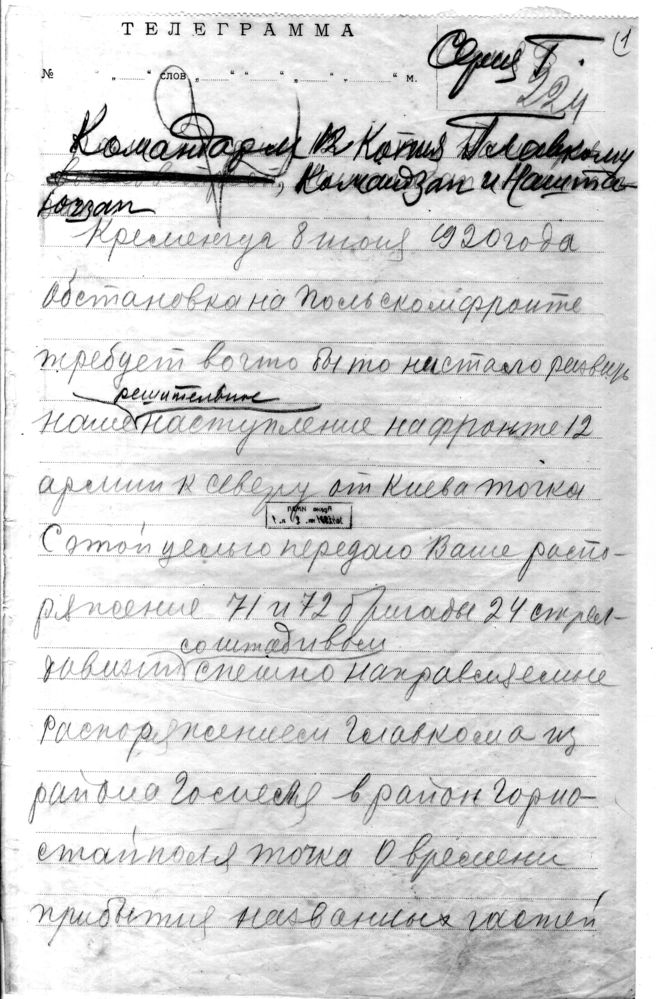 ТЕЛЕГРАММА
1
№ „ “ слов „ “ „ “ „ “ м.
Серия Г.
224
Командарм 12 Копия Главкому
, Командзап и Нашта-
возап
Кременчуг 8 июня 1920 года
Обстановка на Польском фронте
требует во что бы то ни стало развить
решительное
наше наступление на фронте 12
армии к северу от Киева точка
С этой целью передаю Ваше распо-
ряжение 71 и 72 бригады 24 стрел-
со штадивом
дивизии спешно направляемые
распоряжением Главкома из
района Гомеля в район Горно-
стайполя точка О времени
прибытия названных частей